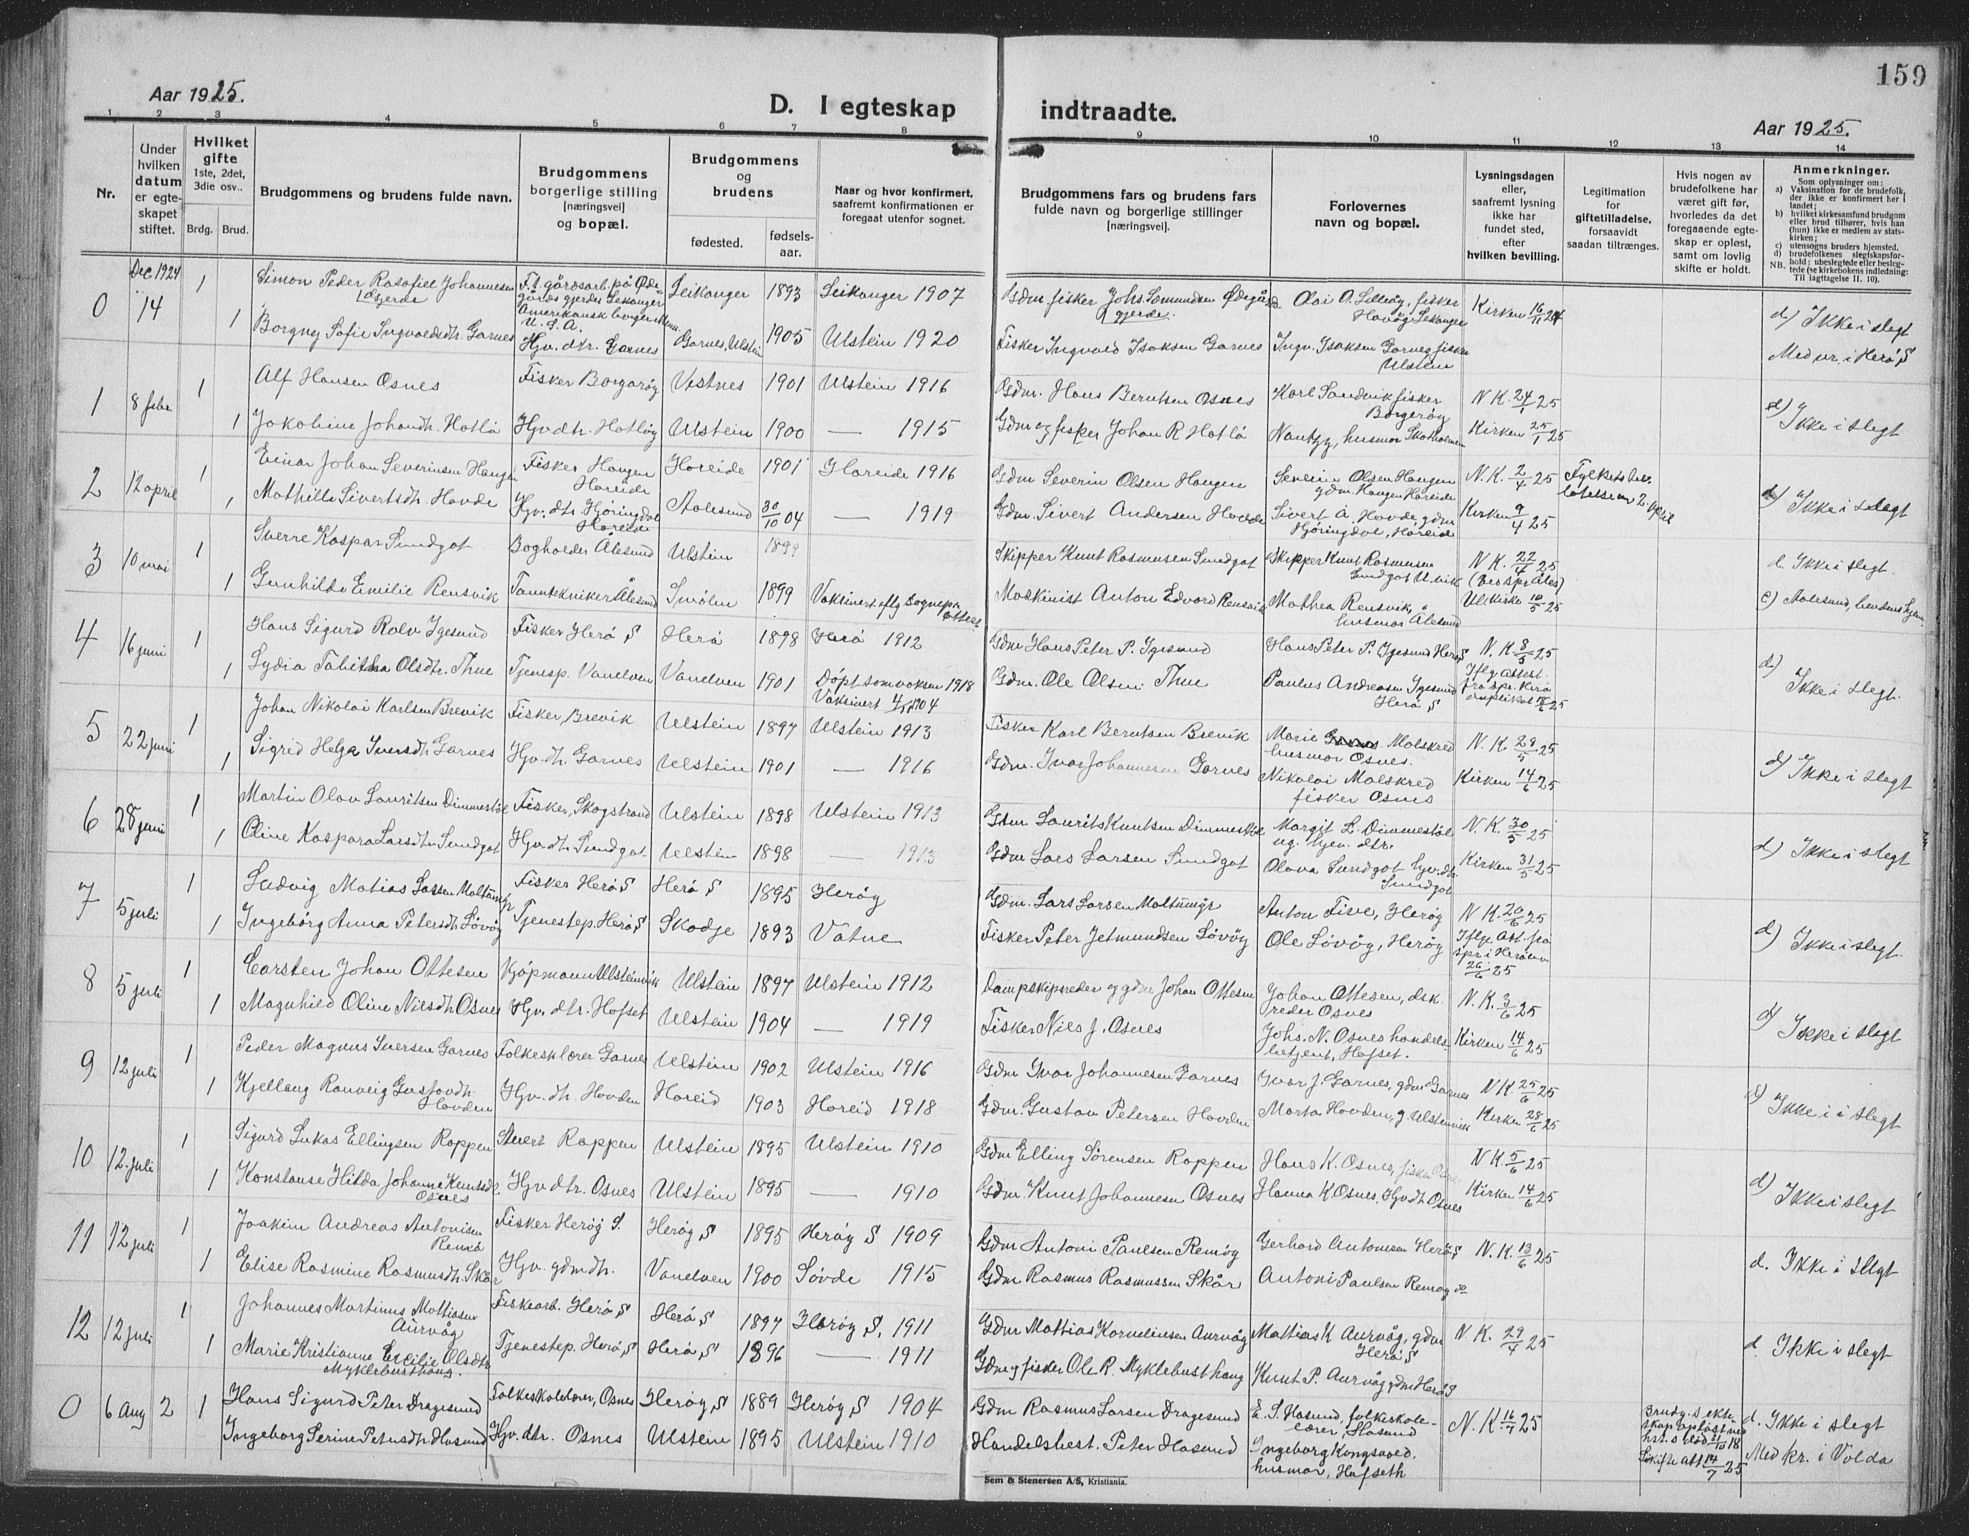 159
Aar 1925.
D. I egteskap indtraadte.
Aar 1925.
1 2 3 4 5 6 7 8 9 10 11 12 13 14
Nr.
Under hvilken datum er egteskapet stiftet.
Hvilket gifte
1ste, 2det, 3die osv..
Brdg. Brud.
Brudgommens og brudens fulde navn.
Brudgommens borgerlige stilling [næringsvei] og bopæl.
Brudgommens og brudens
fødested. fødselsaar.
Naar og hvor konfirmert, saafremt konfirmationen er foregaat utenfor sognet.
Brudgommens fars og brudens fars fulde navn og borgerlige stillinger [næringsvei].
Forlovernes navn og bopæl.
Lysningsdagen eller, saafremt lysning ikke har fundet sted, efter hvilken bevilling.
Legitimation for giftetilladelse, forsaavidt saadan tiltrænges.
Hvis nogen av brudefolkene har været gift før, hvorledes da det foregaaende egteskap er opløst, samt om lovlig skifte er holdt.
Anmerkninger.
Som oplysninger om:
a) Vaksination for de brudefolk, der ikke er konfirmert her i landet;
b) hvilket kirkesamfund brudgom eller brud tilhører, hvis han (hun) ikke er medlem av statskirken;
c) utensogns bruders hjemsted.
d) brudefolkenes slegtskapsforhold: ubeslegtede eller beslegtede (se kirkebokens indledning:
NB. Til iagttagelse II. 10).
0 Dec 1924 14 1 Simon Peder Rasofiel Johannesen Gjerde Leikanger 1893 Leikanger 1907 Gdm. fisker Johs. Ødegård gjerde. Olai O. fisker Kirken 16/11 24
1 Borgny Sofie Ingvaldsdtr. Garnes Hjv. dtr. Garnes Garnes, Ulstein 1905 Ulstein 1920 Fisker Ingvald Isaksen Garnes Ingv. Isaksen Garnes fisker Ulstein d) Ikke i slegt Med nr. i Herø S
1 8 febr 1 Alf Hansen Osnes Fisker Borgarøy Vestnes 1901 Ulstein 1916 Gdm. Hans Berntsen Osnes Karl Sandvik fisker Borgerøy N K. 24/1 25
1 Jakobine Johandtr. Hatlø Hjv. dtr. Hatløy Ulstein 1900 — 1915 Gdm og fisker Johan R Hatlø husmor Kirken 25/1 25 d) Ikke i slegt
2 12 april 1 Einar Johan Severinsen Haugen Fisker Haugen Hareide Hareide 1901 Hareide 1916 Gdm Severin Olsen Haugen Severin Olsen Haugen gdm. Haugen Hareide N. K. 2/4 25
1 Mathilde Sivertsdtr. Hovde Hjv. dtr. Hjøringdal Hareide Aalesund 30/10 04 — 1919 Gdm. Sivert Andersen Hovde Sivert A. Hovde, gdm Hjøringdal, Hareide Kirken 9/4 25 d) Ikke i slegt
3 10 mai 1 Sverre Kaspar Sundgot Bogholder Ålesund Ulstein 1899 Skipper Knut Rasmussen Sundgot Skipper Knut Rasmussen Sundgot N K. 22/4 25
1 Gunhilda Emilie Rensvik Tanntekniker Ålesund Smølen 1899 Maskinist Anton Edvard Rensvik Mathea Rensvik, husmor Ålesund 10/5 25 d. Ikke i slegt.
4 16 juni 1 Hans Sigurd Rolv Igesund Fisker Herø S Herø 1898 Herø 1912 Gdm Hans Peter P. Igesund Hans Peter P. Igesund Herø S N. K 8/5 25
1 Lydia Tabitha Olsdtr. Thue Tjenesp. Vanelven Vanelven 1901 Døpt som voksen 1918 Gdm. Ole Olsen Thue Paulus Andreasen Igesund Herø S d) Ikke i slegt.
5 22 juni 1 Johan Nikolai Karlsen Brevik Fisker, Brevik Ulstein 1897 Ulstein 1913 Fisker Karl Berntsen Brevik Marie Molskred husmor Osnes. N. K. 29/5 25
1 Sigrid Helga Iversdtr. Garnes Hjv. dtr. Garnes Ulstein 1901 — 1916 Gdm. Ivar Johannesen Garnes Nikolai Molskred fisker Osnes Kirken 14/6 25 d) Ikke i slegt
6 28 juni 1 Martin Olav Lauritsen Dimmestøl Fisker, Skogstrand Ulstein 1898 Ulstein 1913 Gdm Laurits Knutsen Dimmestøl Margit L. Dimmestøl ug. hjv. dtr. N. K. 30/5 25
1 Oline Kaspara Larsdtr. Sundgot Hjv. dtr. Sundgot Ulstein 1898 — 1913 Gdm Lars Larsen Sundgot Olava Sundgot hjv. dtr. Sundgot Kirken 31/5 25 d) Ikke i slegt
7 5 juli 1 Ludvig Matias Larsen Moltumyr Fisker Herø S Herø S 1895 Herøy Gdm. Lars Larsen Moltumyr Anton Tive, Herøy N K. 20/6 25
1 Ingeborg Anna Petersdtr. Løvøy Tjenestep. Herø S Skodje 1893 Vatne Fisker Peter Jetmundsen Løvøy Ole Løvøy, Herøy 26/6 25 d) Ikke i slegt.
8 5 juli 1 Carsten Johan Ottesen Kjøpmann Ulsteinvik Ulstein 1897 Ulstein 1912 Dampskipsreder og gdm Johan Ottesen Johan Ottesen, dsk. reder Osnes N. K. 3/6 25
1 Magnhild Oline Nilsdtr. Osnes Hjv. dtr. Hofset Ulstein 1904 — 1919 Fisker Nils J. Osnes Johs. N. Osnes handelsbetjent, Hofset. Kirken 14/6 25 d) Ikke i slegt
9 12 juli 1 Peder Magnus Iversen Garnes Folkeskl. lærer Garnes Ulstein 1902 Ulstein 1916 Gdm Ivar Johannesen Garnes Ivar J. Garnes, gdm Garnes N K. 25/6 25
1 Kjellaug Ranveig Gustavdtr. Hovden Hjv. dtr. Hovden Hareid 1903 Hareid 1918 Gdm. Gustav Petersen Hovden Marta Hovden, Ulsteinvik Kirken 28/6 25 d) Ikke i i slegt
10 12. juli 1 Sigurd Lukas Ellingsen Roppen Stuert Roppen Ulstein 1895 Ulstein 1910 Gdm Elling Sørensen Roppen Hans K. Osnes, fisker Osnes N K. 5/6 25
1 Konstanse Hilda Johanne Knutsdtr. Osnes Hjv. dtr. Osnes Ulstein 1895 — 1910 Gdm Knut Johannesen Osnes Hanna K. Osnes, Hjvdtr. Osnes Kirken 14/6 25 d) Ikke i slegt
11 12 juli 1 Joakim Andreas Antonisen Remø Fisker Herøy S. Herøy S 1895 Herøy S 1909 Gdm Antoni Paulsen Remøy Gerhard Antonisen Herø S N. K. 13/6 25
1 Elise Rasmine Rasmusdtr. Skår Hjv. gdmdtr. Vanelven 1900 Søvde 1915 Gdm Rasmus Rasmussen Skår Antoni Paulsen Remøy d. Ikke i slegt
12 12 juli 1 Johannes Martinus Mattiasen Aurvåg Fiskearb. Herø S Herø S 1897 Herøy S. 1911 Gdm Mattias Korneliusen Aurvåg Mattias K Aurvåg, gdm Herø S N. K. 29/4 25
1 Marie Kristianne Olsdtr. Myklebusthaug. Tjenestep. Herø S Herø S 1896 — 1911 Gdm og fisker Ole R. Myklebusthaug Knut P. Aurvåg gdm Herø S d Ikke i slegt
0 6 Aug 2 Hans Sigurd Peter Dragesund Folkeskolelærer, Osnes Herøy S 1889 Herøy S 1904 Gdm Rasmus Larsen Dragesund E. S. Hasund, folkeskolelærer, Hasund N. K 16/7 25 Skifteatt 14/7 25
1 Ingeborg Serine Petersdtr. Hasund Hjv. dtr. Osnes Ulstein 1895 Ulstein 1910 Handelsbest. Peter Hasund Ingeborg Kongsvoll. husmor, Hofseth d. Ikke i slegt Med kr. i Volda
Sem & Stenersen A/S, Kristiania.